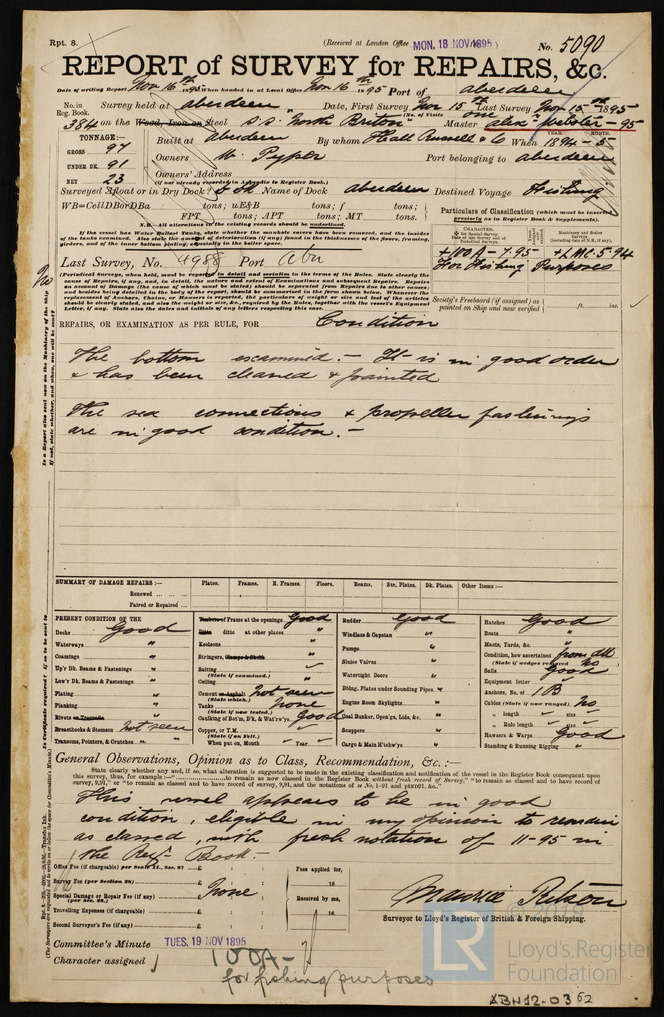 Rpt. 8.
(Received at London Office MON. 18 NOV 1895)
No. 5090
REPORT of SURVEY for REPAIRS, &c.
Date of writing Report Nov 16th 1895 When handed in at Local Office Nov 16th 1895 Port of Aberdeen
No. in Reg. Book. Survey held at Aberdeen Date, First Survey Nov 15th Last Survey Nov 15th 1895
(No. of Visits one
384 on the Wood, Iron or Steel S.S. "North Briton" Master Alexr Webster - 95
TONNAGE:— Built at Aberdeen By whom Hall Russell & Co When 1894 - 5
YEAR. MONTH.
GROSS 97
Owners W. Pyper Port belonging to Aberdeen
UNDER DK. 91
Owners' Address
NET 23
(if not already recorded in Appendix to Register Book.)
Surveyed Afloat or in Dry Dock? Name of Dock Aberdeen Destined Voyage Fishing
WB=CellDBorDBa tons; uE&B tons; f tons;
FPT tons; APT tons; MT tons.
N.B.—All alterations in the existing records should be underlined.
If the vessel has Water Ballast Tanks, state whether the manhole covers have been removed, and the insides of the tanks examined. Also state the amount of deterioration (if any) found in the thickness of the floors, framing, girders, and of the inner bottom plating, especially in the boiler space.
Particulars of Classification (which must be inserted precisely as in Register Book & Supplements).
CHARACTER.
+100A - 7.95 +LMC 5.94
For Fishing Purposes
Last Survey, No. 4988 Port Abn
(Periodical Surveys, when held, must be reported in detail and seriatim in the terms of the Rules. State clearly the cause of Repairs, if any, and, in detail, the nature and extent of Examinations and subsequent Repairs. Repairs on account of Damage (the cause of which must be stated) should be separated from Repairs due to other causes; and besides being detailed in the body of the report, should be summarised in the form shown below. Whenever the replacement of Anchors, Chains, or Hawsers is reported, the particulars of weight or size and test of the articles should be clearly stated, and also the weight or size, &c., required by the Rules, together with the vessel's Equipment Letter, if any. State also the dates and initials of any letters respecting this case.
Society's Freeboard (if assigned) as painted on Ship and now verified ft. ins.
REPAIRS, OR EXAMINATION AS PER RULE, FOR Condition
The bottom examined.— It is in good order
& has been cleaned & painted
The sea connections & propeller fastenings
are in good condition.—
SUMMARY OF DAMAGE REPAIRS:— Plates. Frames. R. Frames. Floors. Beams. Str. Plates. Dk. Plates. Other Items:—
Renewed ... ... ...
Faired or Repaired ...
PRESENT CONDITION OF THE
Decks Good
Waterways "
Coamings "
Up'r Dk. Beams & Fastenings "
Low'r Dk. Beams & Fastenings "
Plating "
Planking "
Rivets or Treenails "
Breasthooks & Stemson not seen
Transoms, Pointers, & Crutches "
Timbers of Frame at the openings Good
Ditto ditto at other places "
Keelsons "
Stringers, Clamps & Shelfs "
Salting
(State if examined.)
Ceiling
Cement or Asphalt not seen
(State which.)
Tanks none
(State if now tested.)
Caulking of Bot'm, D'k, & Wat'rw'ys Good
Copper, or T.M.
(State if on Felt.)
When put on, Month Year
Rudder Good
Windlass & Capstan "
Pumps "
Sluice Valves "
Watertight Doors "
Dbling. Plates under Sounding Pipes "
Engine Room Skylights "
Coal Bunker, Open'gs, Lids, &c. "
Scuppers "
Cargo & Main H'tchw'ys "
Hatches Good
Boats "
Masts, Yards, &c. "
Condition, how ascertained from dk
(State if wedges removed) no
Sails Good
Equipment letter
Anchors, No. of 1B
Cables (State if now ranged) no
" length size
" Rule length size
Hawsers & Warps Good
Standing & Running Rigging "
General Observations, Opinion as to Class, Recommendation, &c.:—
State clearly whether any, and if so, what alteration is suggested to be made in the existing classification and notification of the vessel in the Register Book consequent upon this survey, thus, for example—"
to remain as now classed in the Register Book without fresh record of Survey," "to remain as classed and to have record of survey, 9,91," or "to remain as classed and to have record of survey, 9,91, and the notations of
This vessel appears to be in good
condition, eligible in my opinion to remain
as classed, with fresh notation of 11-95 in
the Regr Book.—
Office Fee (if chargeable) per Scale II., Sec. 27 £ : :
Survey Fee (per Section 28) £ : :
Special Damage or Repair Fee (if any) £ None
(per Sec. 28.)
Travelling Expenses (if chargeable) £ : :
Second Surveyor's Fee (if any) £ : :
Fees applied for,
18
Received by me,
18
Maurice Ritson
Surveyor to Lloyd's Register of British & Foreign Shipping.
Committee's Minute TUES. 19 NOV 1895
Character assigned 100A-
for fishing purposes
© 2019
LR Lloyd's Register Foundation
ABN12-0362
No
Is a Report also sent now on the Machinery of the Ship